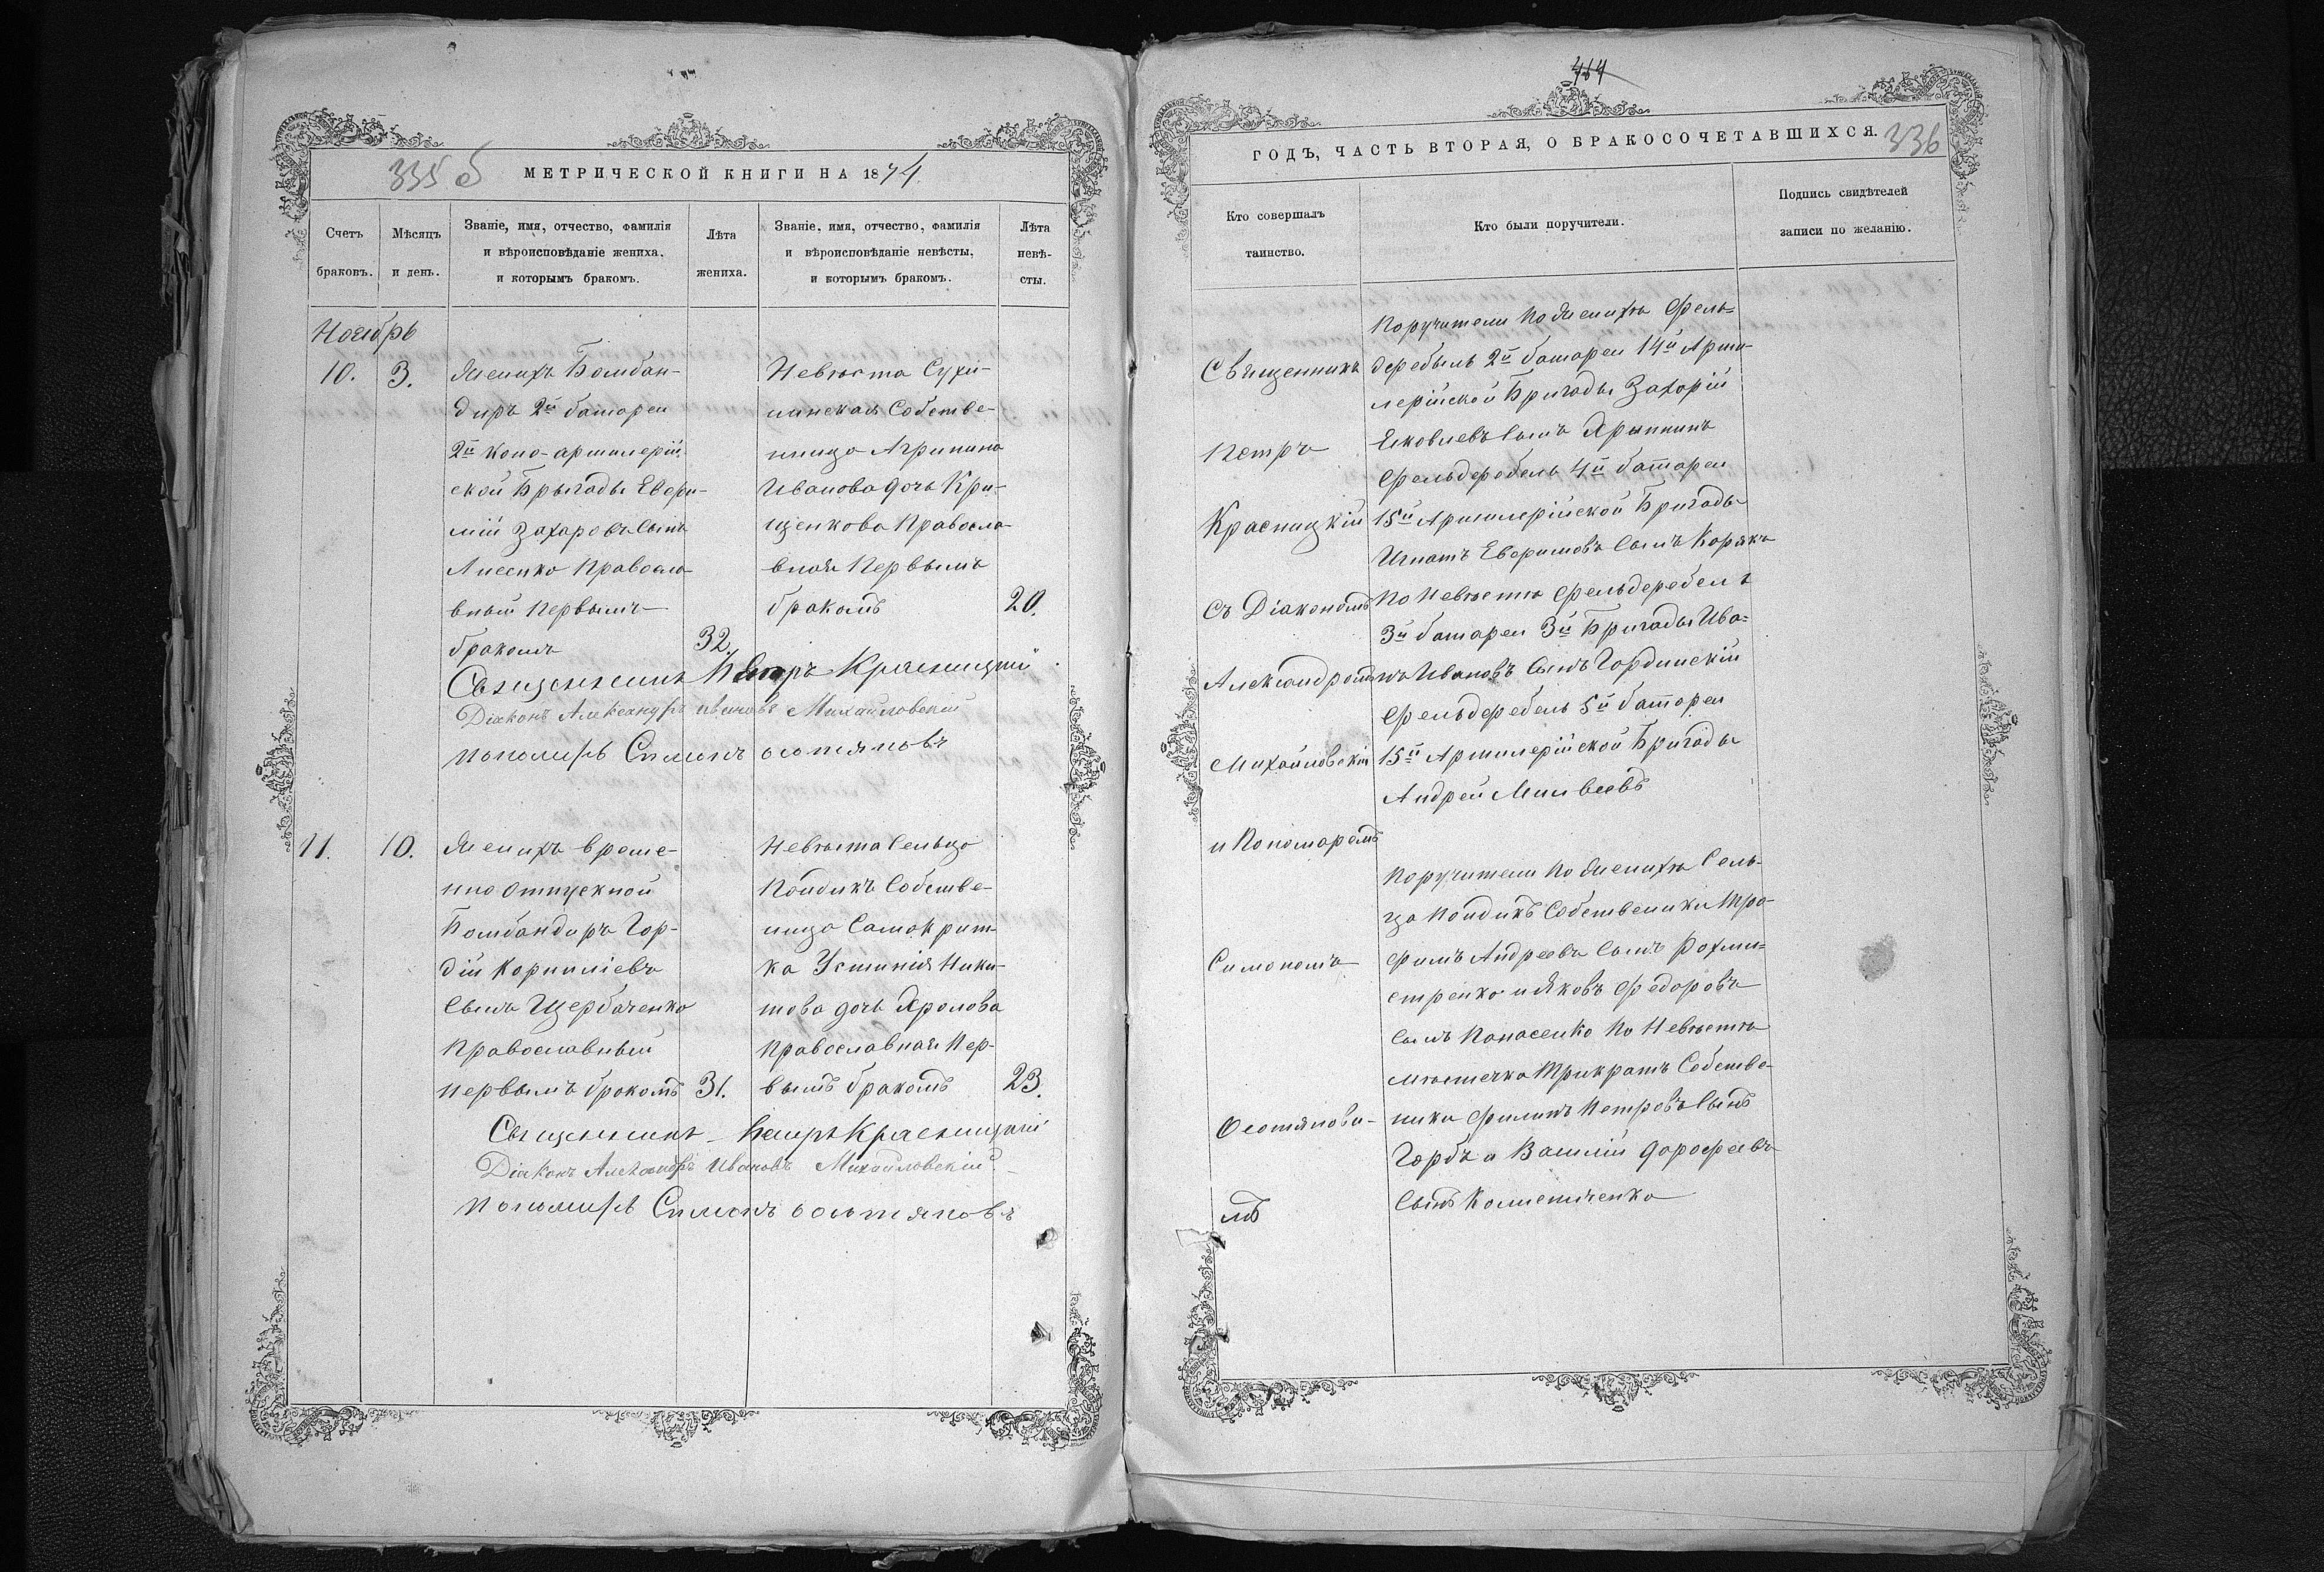 335 б МЕТРИЧЕСКОЙ КНИГИ НА 1874.
Счетъ браковъ.
Мѣсяцъ и день.
Званіе, имя, отчество, фамилія
и вѣроисповѣданіе жениха,
и которымъ бракомъ.
Лѣта
жениха.
Званіе, имя, отчество, фамилія
и вѣроисповѣданіе невѣсты,
и которымъ бракомъ.
Лѣта
невѣ-
сты.
Ноябрь
10. 3.
Женихъ Бомбан-
диръ 2й батареи
2й Коно-артилерій-
ской Брыгады Евфи-
мій Захаровъ Сынъ
Лисенко Правосла-
вный Первымъ
бракомъ
32.
Невѣста Сухи-
линская Собстве-
ница Агрипина
Иванова дочь Кри-
щенкова Правосла-
вная Первымъ
бракомъ
20.
Священникъ Петръ Красницкій
Діаконъ Александръ Ивановъ Михайловскій
Пономарь Симонъ Осотяновъ
11. 10.
Женихъ време-
нно отпускной
Бомбандиръ Гор-
дій Корниліевъ
Сынъ Щербаченко
Православный
Первымъ бракомъ
31.
Невѣста Сельца
Кондикъ Собстве-
ница Самокрит-
ка Устинія Ники-
това дочь
Православная Пер-
вымъ бракомъ
23.
Священникъ Петръ Красницкій
Діаконъ Александръ Ивановъ Михайловскій
Пономарь Симонъ Осотяновъ
464
ГОДЪ, ЧАСТЬ ВТОРАЯ, О БРАКОСОЧЕТАВШИХСЯ. 336
Кто совершалъ
таинство.
Кто были поручители.
Подпись свидѣтелей
записи по желанію.
Священникъ
Петръ
Красницкій
съ Діакономъ
Александромъ
Михайловскім
и Пономаремъ
Симономъ
Осотянови-
мъ
Поручители По Женихѣ Фель=
дфебыль 2й батареи 14й Арти-
лерійской Бригады Захарій
Яковлевъ Сынъ
Фельдфебель 4й батареи
15й Артилерійской Бригады
Игнатъ Евфимовъ Сынъ Корякъ
По Невѣстѣ Фельдфебель
3й батареи 3й Бригады Ива=
нъ Ивановъ Сынъ Гординскій
Фельдфебель 5й батареи
15й Артилерійской Бригады
Андрей
Поручители По Женихѣ Сель-
ца Кондикъ Собственики Тро-
фимъ Андреевъ Сынъ Рохми=
стренко и Яковъ Федоровъ
Сынъ Панасенко По Невѣстѣ
мѣстечка Трикратъ Собстве-
ники Филипъ Петровъ Сынъ
Горбъ и Василій Дорофеевъ
Сынъ